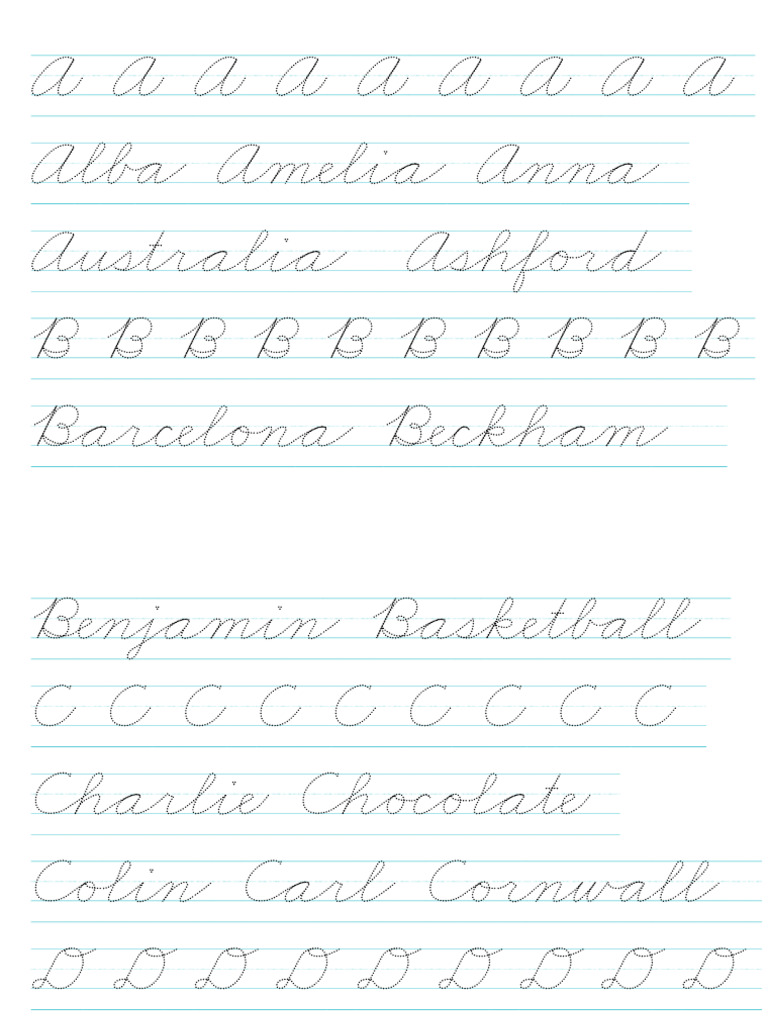 A A A A A A A A A
Alba Amelia Anna
Australia Ashford
B B B B B B B B B B
Barcelona Beckham
Benjamin Basketball
C C C C C C C C C
Charlie Chocolate
Colin Carl Cornwall
D D D D D D D D D